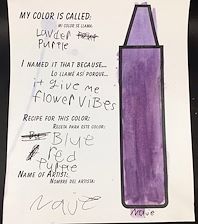 MY COLOR IS CALLED:
MI COLOR SE LLAMA:
Lavder
Purple
I NAMED IT THAT BECAUSE...
LO LLAMÉ ASÍ PORQUE...
it give me
flower vibes
RECIPE FOR THIS COLOR:
RECETA PARA ESTE COLOR:
Blue
red
Purple
NAME OF ARTIST:
NOMBRE DEL ARTISTA: